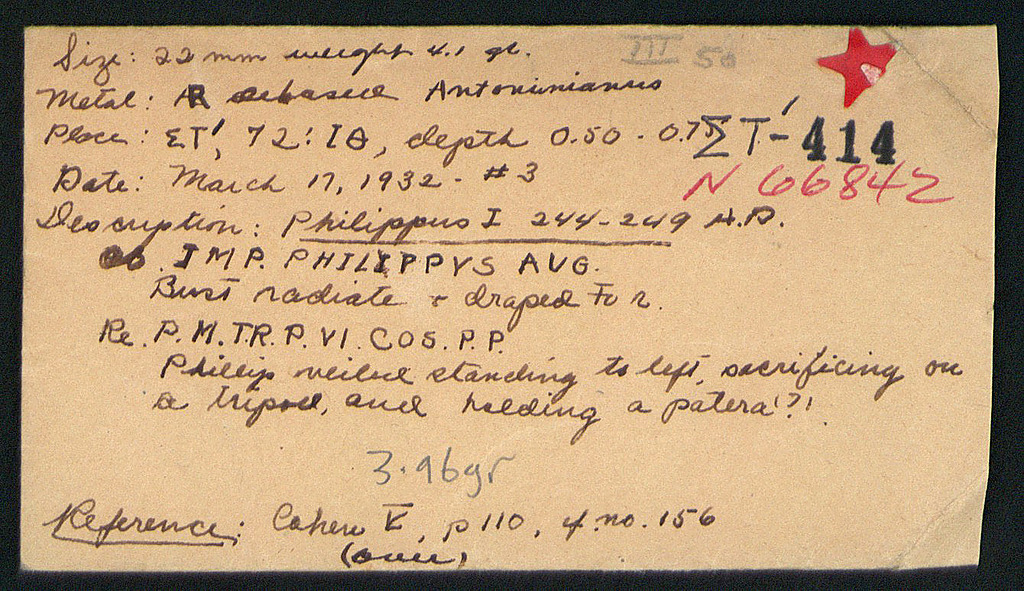 Size: 22 mm weight 4.1 gr. III 50
Metal: AR debased Antoninianus
Place: ΣΤ', 72:ΙΘ, depth 0.50 - 0.75 ΣΤ'-414
Date: March 17, 1932 - #3 N 66842
Description: Philippus I 244-249 A.D.
Ob. IMP. PHILIPPVS AUG.
Bust radiate + draped to r.
Re. P.M.TR.P.VI.COS.P.P.
Phillip veiled standing to left, sacrificing on
a tripod, and holding a patera(?)
3.96gr
Reference: Cohen V, p 110, cf. no. 156
(over)